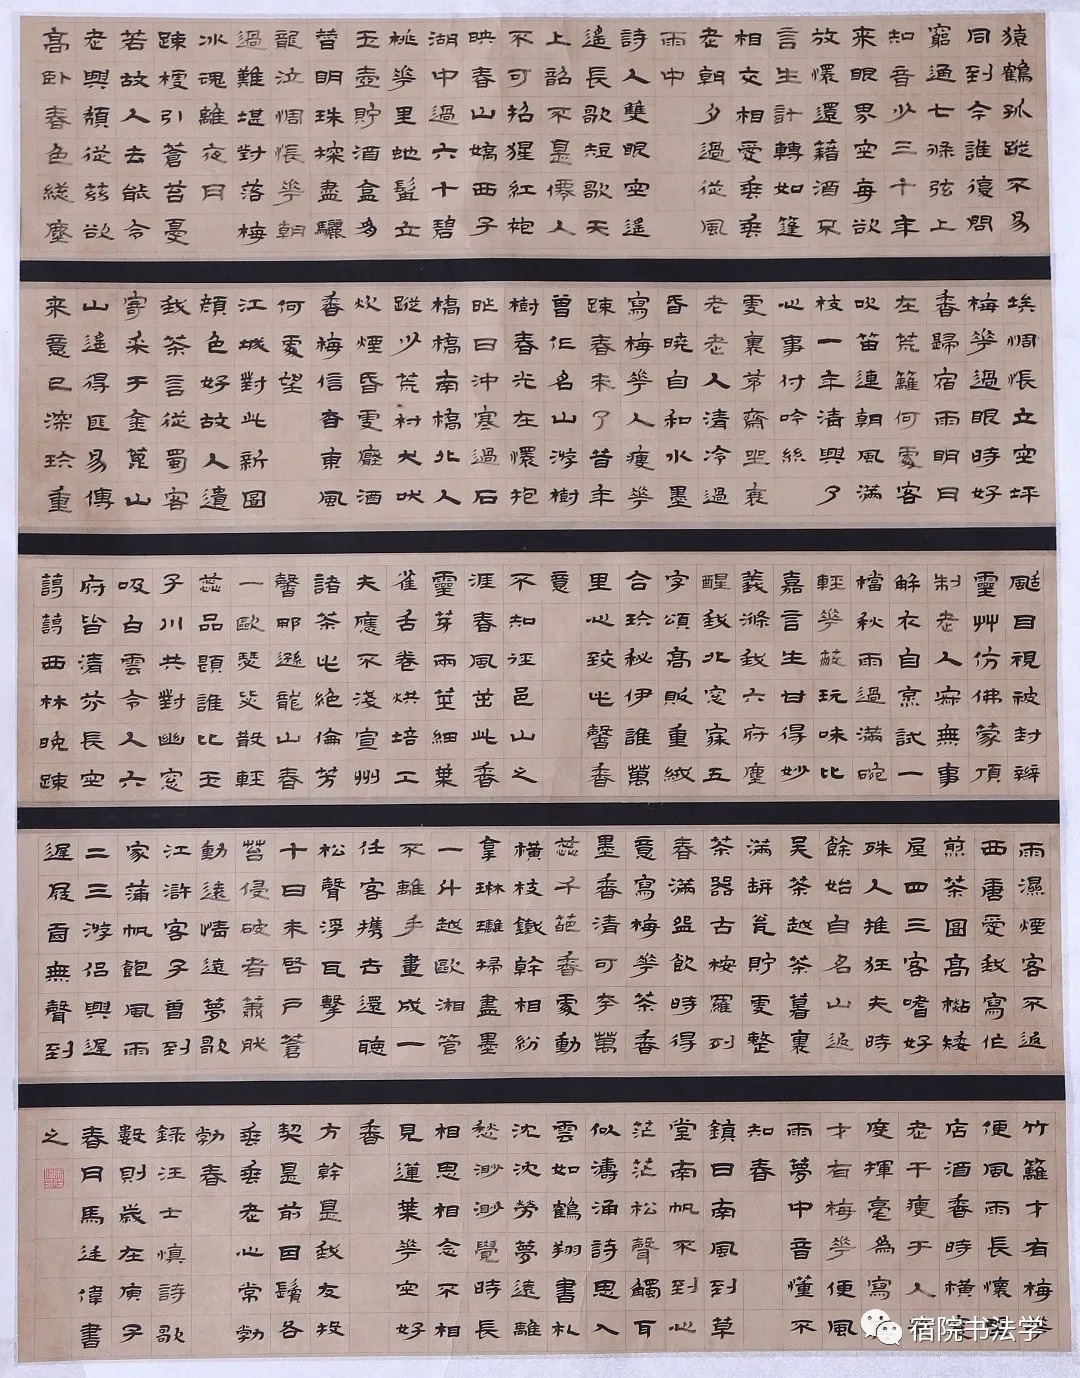 猿鶴孤蹤不易
同到今誰復問
窮通七條弦上
知音少三十年
來眼界空每欲
放懷還籍酒不
言生計轉如蓬
相交相愛垂垂
老朝夕過從風
雨中
詩人雙眼空遙
遙長歌短歌天
上韶不是僊人
不可招猩紅袍
映春山嬌西子
湖中過六十碧
桃花里虵髯立
玉壺貯酒盒多
昔明珠探盡驪
龍泣惆悵花朝
過難堪對落梅
冰魂離夜月
踈櫺引蒼苔憂
若故人去能令
老興頹從茲欲
高卧春色總塵
埃惆悵立空坪
梅花過眼時好
香歸宿雨明月
在荒籬何處客
吹笛連朝風滿
枝一年清興了
心事付吟絲
雪裏茅齋坐衰
老老人清冷過
昏曉自和水墨
寫梅花人瘦花
踈春未了昔年
曾作名山游樹
樹春光在懷抱
昨日沖寒過石
橋橋南橋北人
蹤少荒村犬吠
炊煙昏雪廢酒
香梅信杳東風
何處望
江城對此新圖
顏色好故人遺
我茶言從蜀客
寄采于金蓖山
山遙得匪易傳
來意已深珍重
颸目視被封辦
靈艸仿佛蒙頂
制老人寂無事
解衣自烹試一
檔秋雨過滿碗
輕花蔽玩味比
嘉言生甘得妙
義滌我六府塵
醒我北窓寐五
字頌高販重緘
合珍秘伊誰萬
里心致此馨香
意
不知徑邑山之
涯春風茁此香
靈芽兩莖細葉
雀舌卷烘培工
夫應不淺宣州
諸茶此絕倫芳
馨那遜龍山春
一歐瑟瑟散輕
蕊品題誰比玉
子川共對幽窓
吸白雲令人六
府皆清芬長空
藹藹西林晚踈
雨濕煙客不返
西唐愛我寫忙
煎茶圖高樹矮
屋四三客嗜好
殊人推狂夫時
餘始自名山返
吳茶越茶暮裏
滿缾瓮貯雪整
茶器古桉羅列
春滿盌飲時得
意寫梅花茶香
墨香清可夸萬
蕊千葩香處動
橫枝鐵幹相紛
拿琳瓘掃盡墨
一斗越歐湘管
不離手畫成一
任客攜去還聽
松聲浮瓦擊
十日未啓戶蒼
苔侵破者蕭肰
動遠情遠夢歌
江滸客子曾到
家蒲帆飽風雨
二三游侶興遲
遲屐齒無聲到
竹籬才有梅花
便風雨長懷
店酒香時橫
老干瘦于人
度揮毫為寫
才有梅花便風
雨夢中音懂不
知春
鎮日南風到草
堂南帆不到心
茫茫松聲觸耳
似濤涌詩思入
雲如鶴翔書札
沈沈勞夢遠離
愁渺渺覺時長
相思相念不相
見蓮葉花空好
香
方幹是我友投
契是前因鬢各
垂垂老心常勃
勃春
錄汪士慎詩歌
數則歲在庚子
春月馬廷偉書
之
宿院书法学